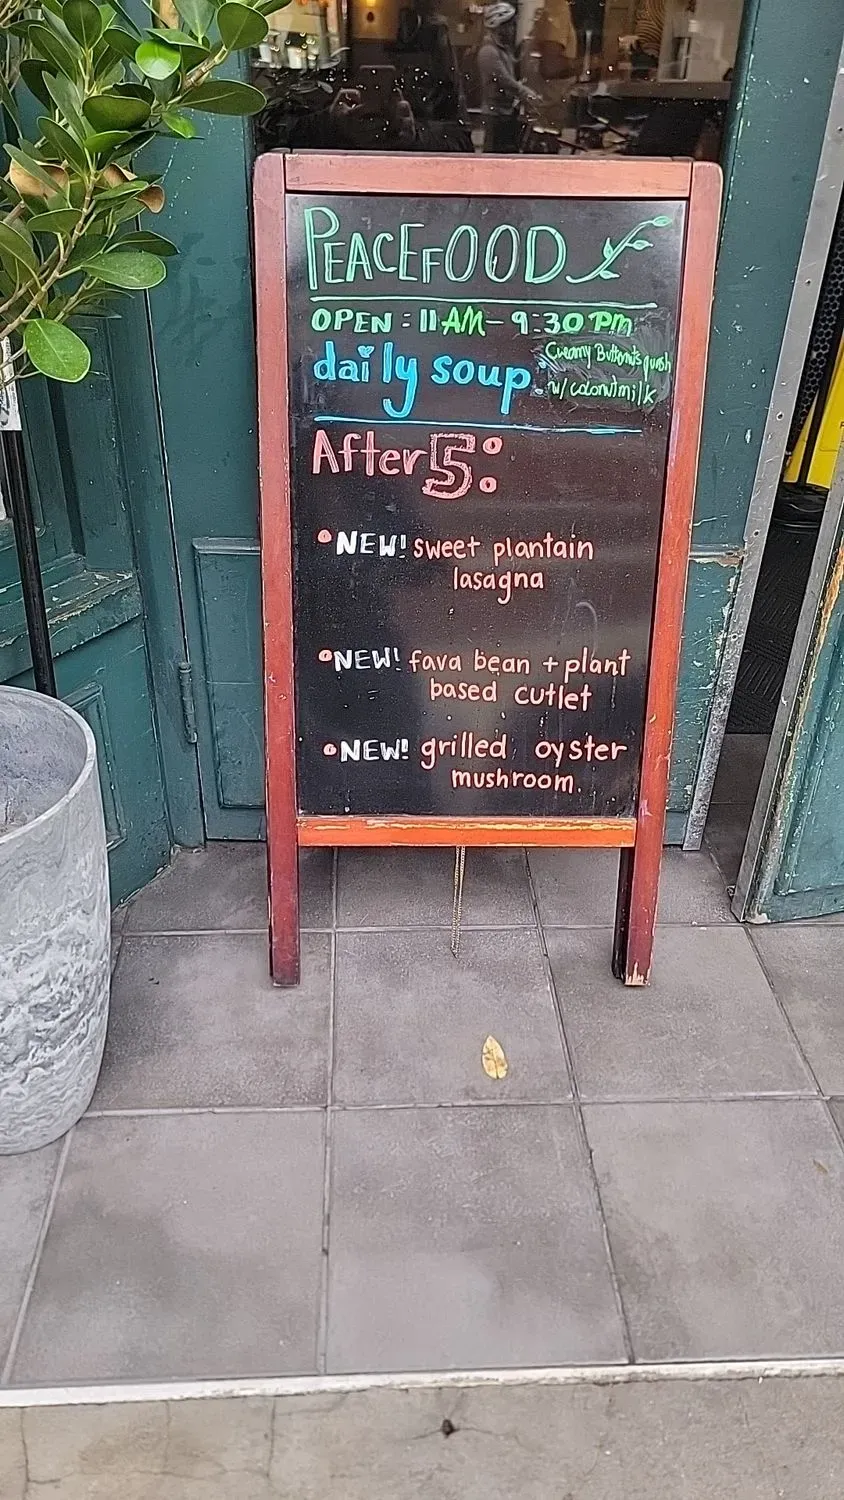 PEACEFOOD
OPEN : 11AM - 9:30 PM
daily soup: Creamy Butternut squash
w/ coconut milk
After 5:
• NEW! sweet plantain
lasagna
• NEW! fava bean + plant
based cutlet
• NEW! grilled oyster
mushroom.